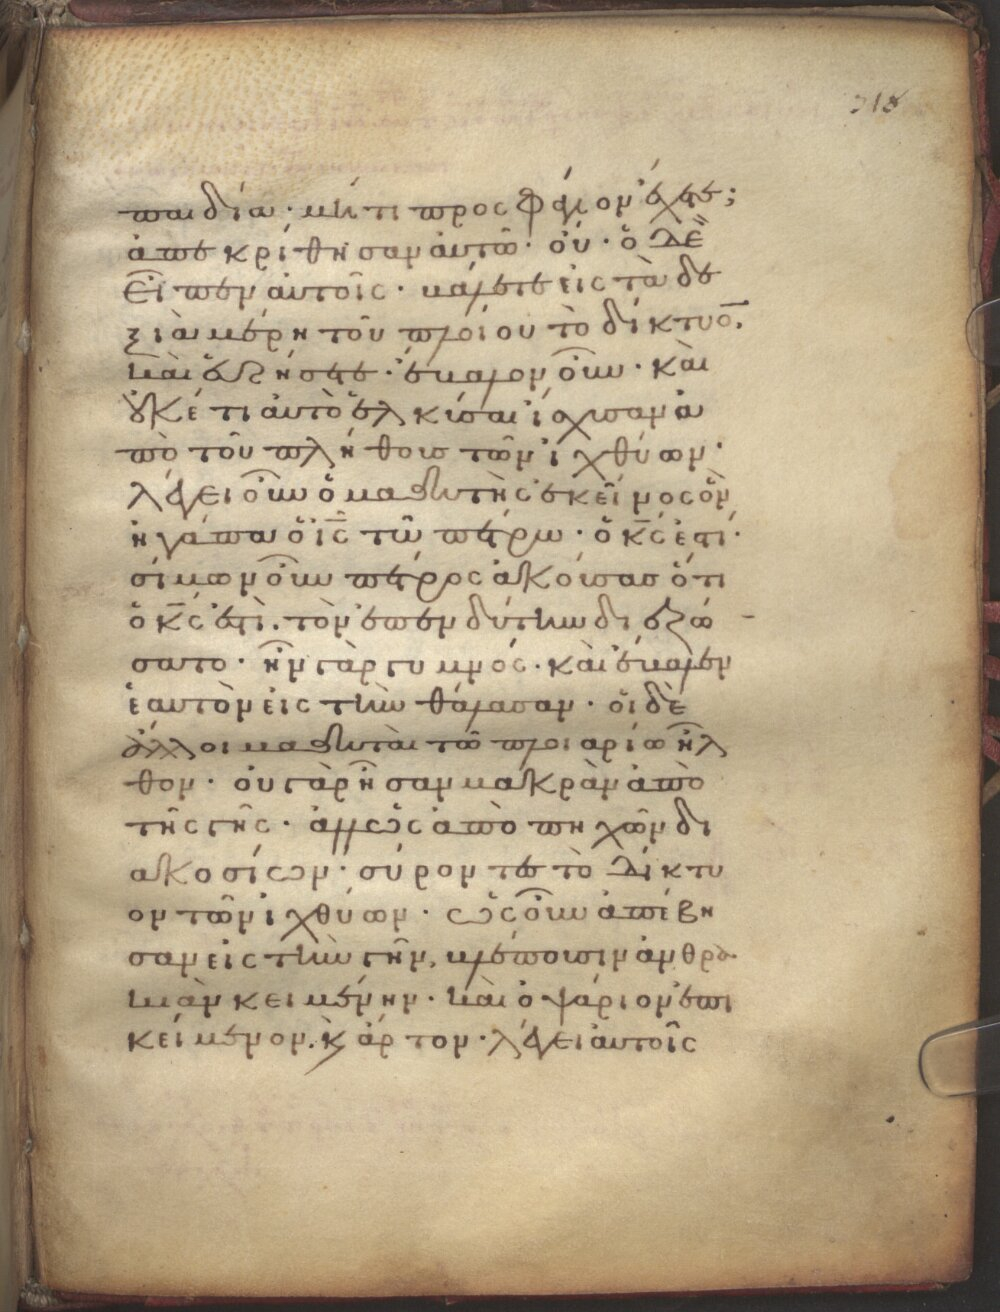 218
παιδία· μή τι προσφάγιον ἔχετε;
ἀπεκρίθησαν ἀυτῶ· οὔ· ὁ δὲ
εἶπεν ἀυτοῖς· βάλετε εἰς τὰ δε
ξιὰ μέρη τοῦ πλοίου τὸ δίκτυο̅.
καὶ ἑυρήσετε· ἔβαλον οὖν· καὶ
ὀυκέτι ἀυτὸ ἑλκύσαι ἴσχυσαν ἀ
πὸ τοῦ πλήθους τῶν ἰχθύων·
λέγει οὖν ὁ μαθητὴς ἐκεῖνος ὃν
ἠγάπα ὁ ις̅ τῶ πέτρω· ὁ κς̅ ἐστί·
σίμων οὖν πέτρος ἀκούσας ὅτι
ὁ κς̅ ἐστὶ. τὸν ἐπενδύτην διεζώ
σατο· ἦν γὰρ γυμνός· καὶ ἔβαλεν
ἑαυτὸν εἰς τὴν θάλασσαν· οἱ δὲ
ἄλλοι μαθηταὶ τῶ πλοιαρίω ἦλ
θον· ὀυ γὰρ ἦσαν μακρὰν ἀπὸ
τῆς γῆς· ἀλλ ὡς ἀπὸ πηχῶν δι
ακοσίων· σύροντες τὸ δίκτυ
ον τῶν ἰχθύων· ὡς οὖν ἀπέβη
σαν εἰς τὴν γῆν, βλέπουσιν ἀνθρα
κιὰν κειμένην· καὶ ὀψάριον ἐπι
κείμενον. κ̀ ἄρτον· λέγει ἀυτοῖς